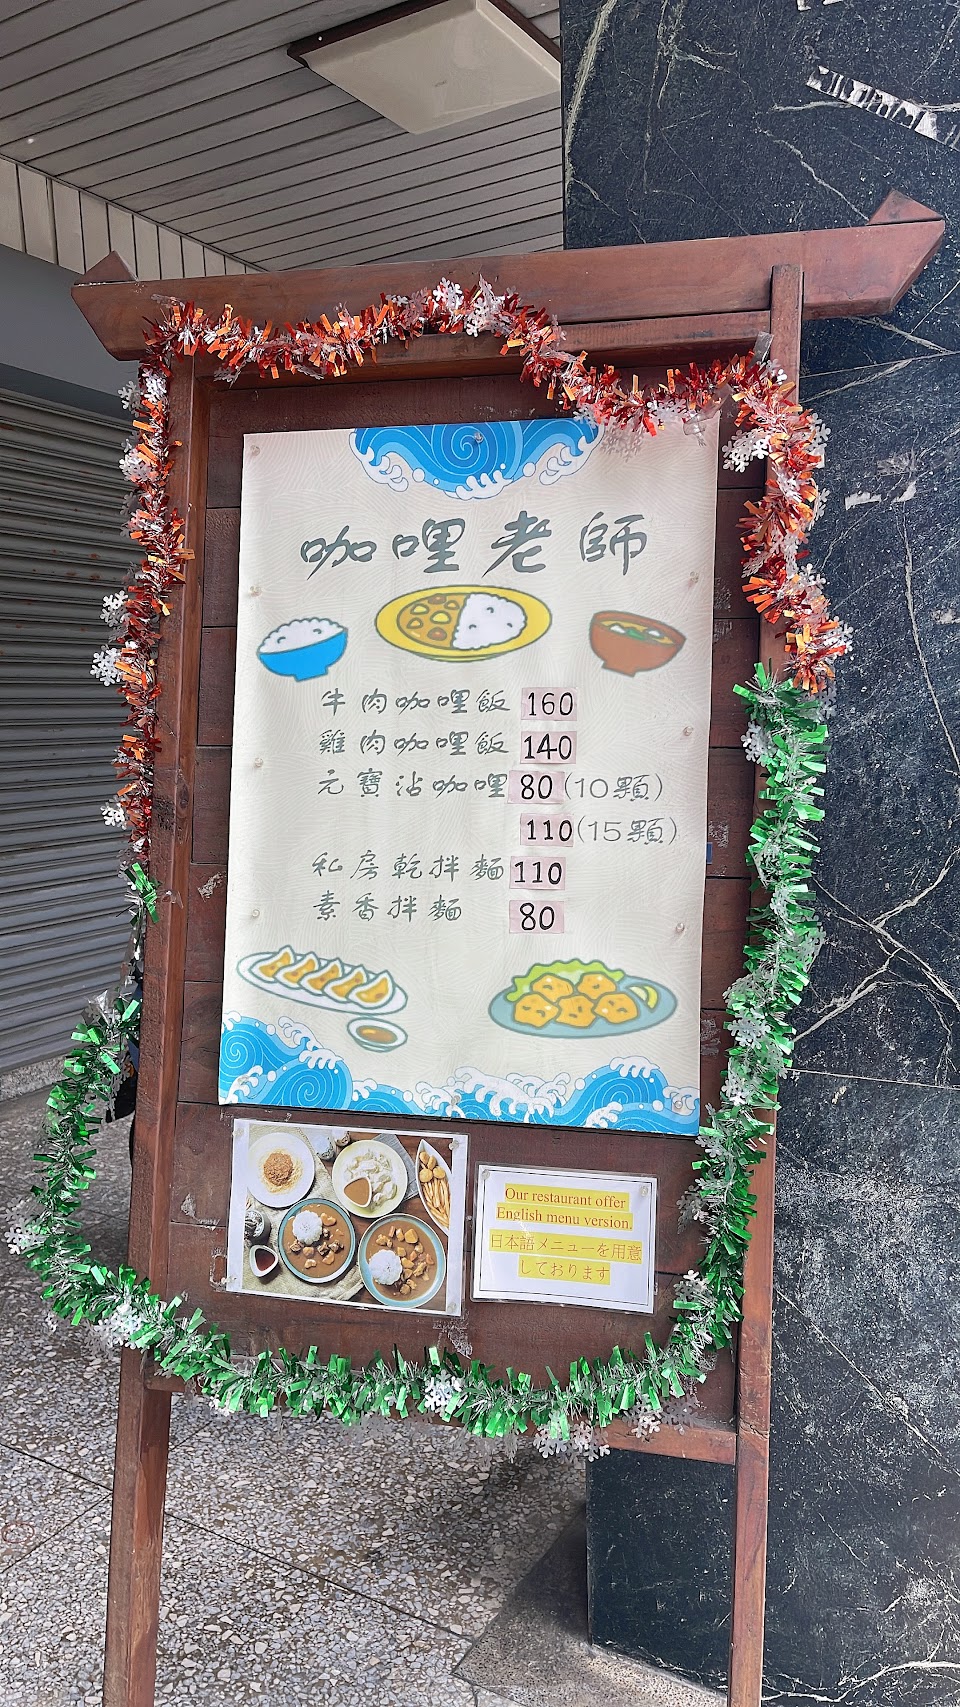 咖哩老師
牛肉咖哩飯 160
雞肉咖哩飯 140
元寶沾咖哩 80 (10顆)
110 (15顆)
私房乾拌麵 110
素香拌麵 80
Our restaurant offer
English menu version.
日本語メニューを用意
しております